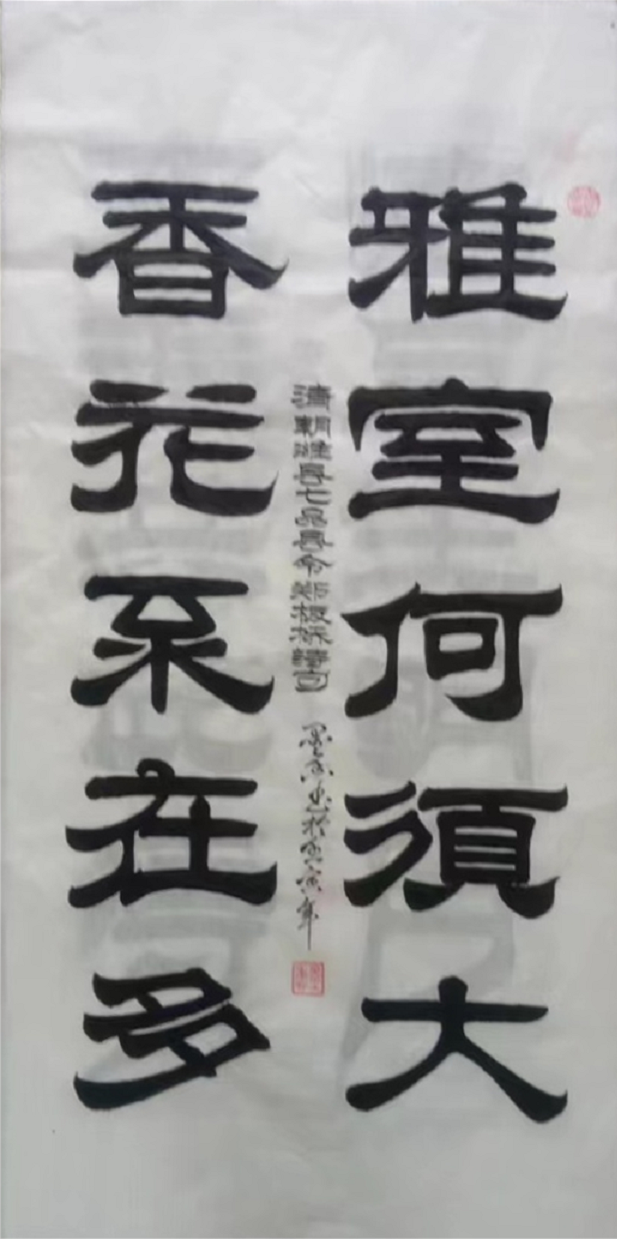 雅室何須大
清朝濰县七品县令鄭板桥詩句 於寅年
香花不在多